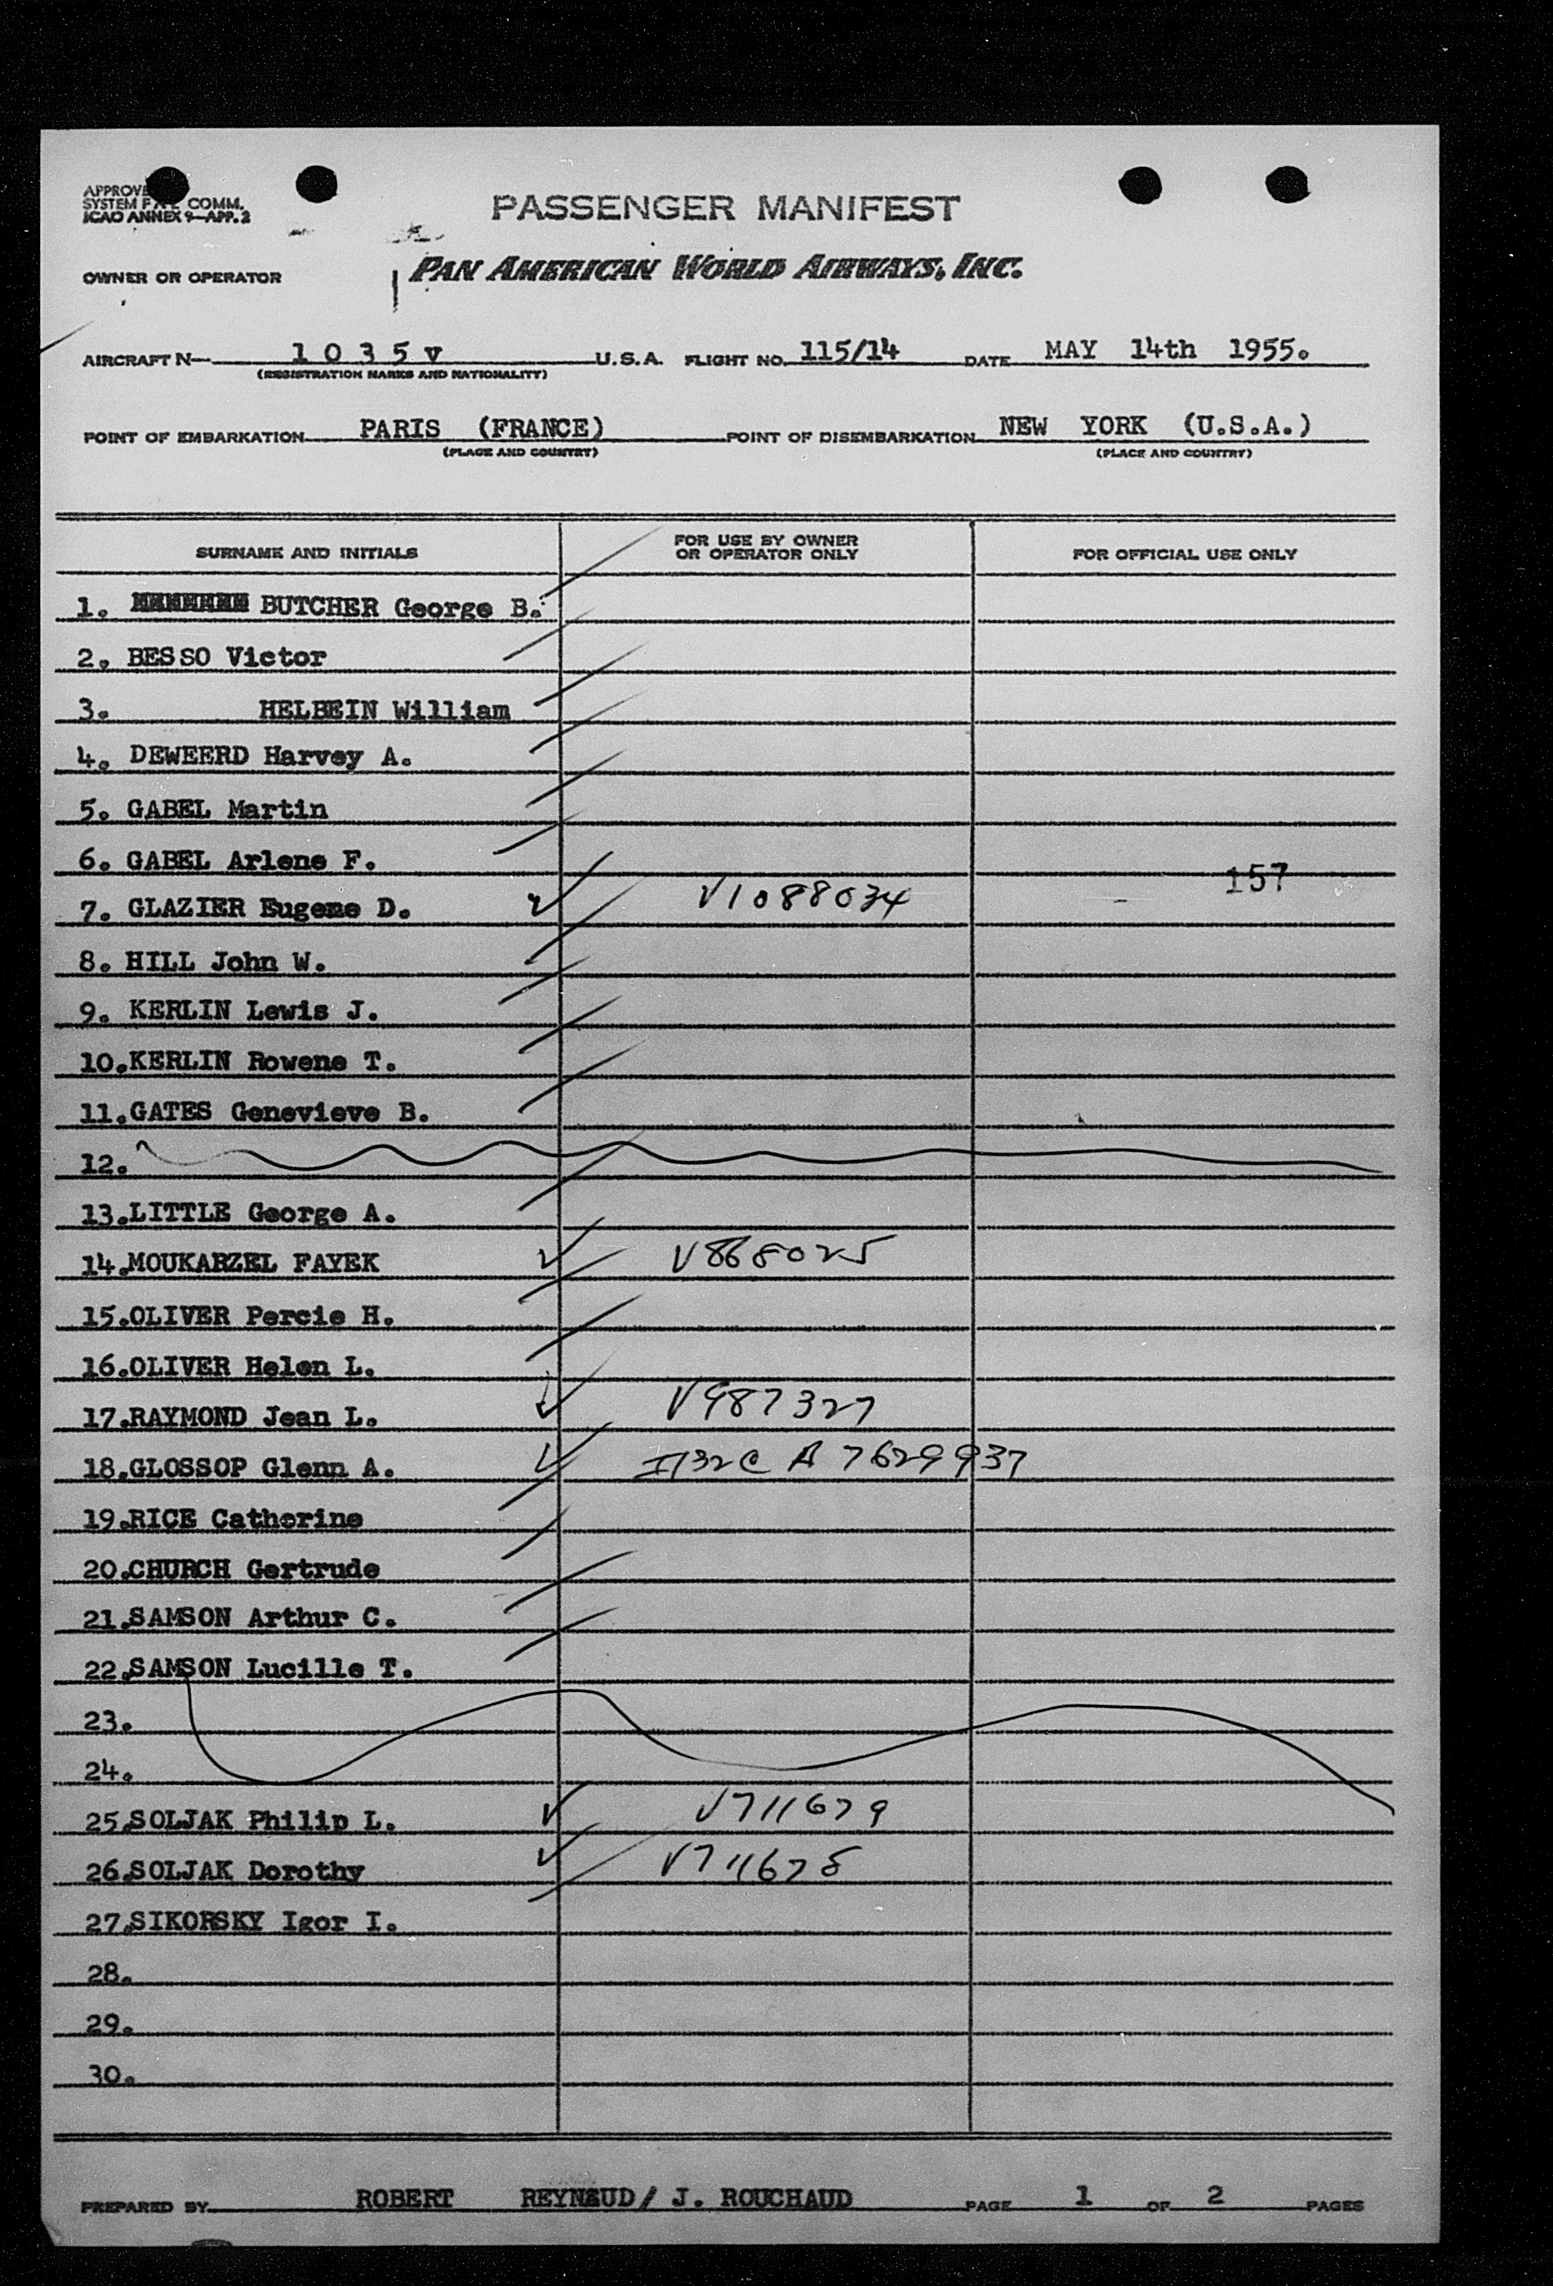 APPROVE
SYSTEM F A L COMM.
ICAO ANNEX 9—APP. 2
PASSENGER MANIFEST
OWNER OR OPERATOR PAN AMERICAN WORLD AIRWAYS, INC.
AIRCRAFT N— 1 0 3 5 V U.S.A. FLIGHT NO. 115/14 DATE MAY 14th 1955.
(REGISTRATION MARKS AND NATIONALITY)
POINT OF EMBARKATION PARIS (FRANCE) POINT OF DISEMBARKATION NEW YORK (U.S.A.)
(PLACE AND COUNTRY) (PLACE AND COUNTRY)
SURNAME AND INITIALS FOR USE BY OWNER OR OPERATOR ONLY FOR OFFICIAL USE ONLY
1. BUTCHER George B.
2. BESSO Victor
3. HELBEIN William
4. DEWEERD Harvey A.
5. GABEL Martin
6. GABEL Arlene F.
157
7. GLAZIER Eugene D. V1088034
8. HILL John W.
9. KERLIN Lewis J.
10. KERLIN Rowene T.
11. GATES Genevieve B.
12.
13. LITTLE George A.
14. MOUKARZEL FAYEK V868025
15. OLIVER Percie H.
16. OLIVER Helen L.
17. RAYMOND Jean L. V987327
18. GLOSSOP Glenn A. I132C A 7629937
19. RICE Catherine
20. CHURCH Gertrude
21. SAMSON Arthur C.
22. SAMSON Lucille T.
23.
24.
25. SOLJAK Philip L. V711679
26. SOLJAK Dorothy V711678
27. SIKORSKY Igor I.
28.
29.
30.
PREPARED BY ROBERT REYNAUD/ J. ROUCHAUD PAGE 1 OF 2 PAGES